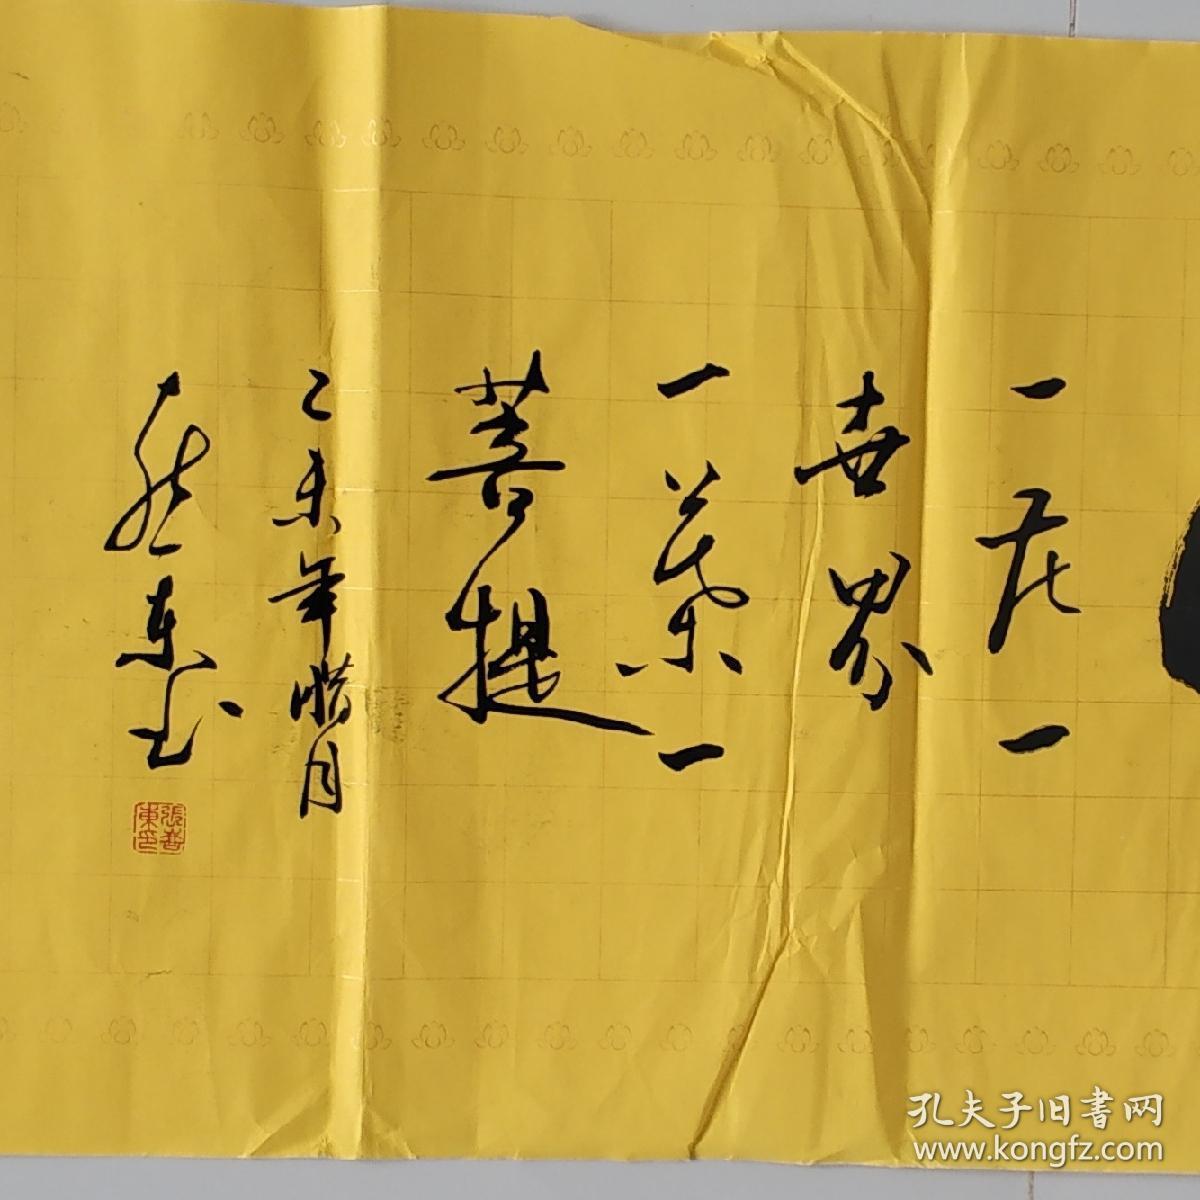 一花一
世界
一葉一
菩提
乙未年腊月
東书
張善東印
孔夫子旧書网
www.kongfz.com